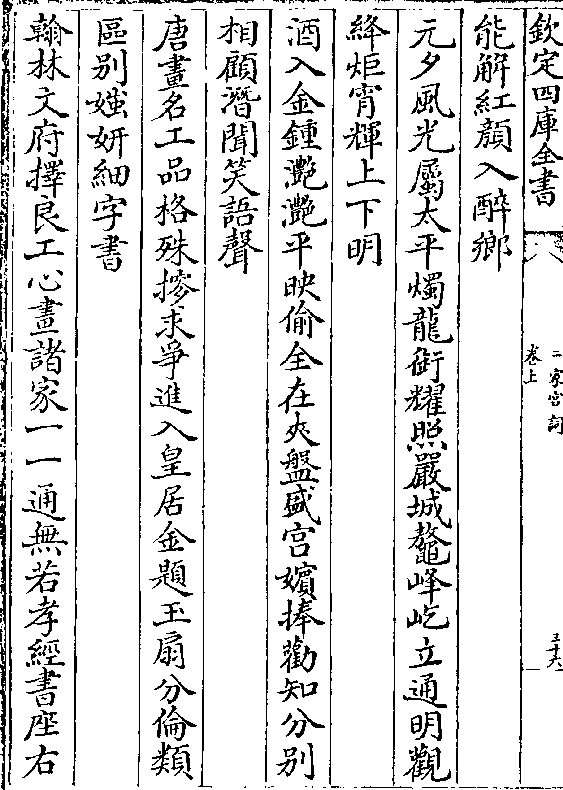 欽定四庫全書
二家宮詞
卷上
三十六
能解紅顏入醉鄉
元夕風光屬太平燭龍銜耀照嚴城鼇峰屹立通明觀
絳炬宵輝上下明
酒入金鍾灔灔平映偷全在夾盤盛宫嬪捧勸知分别
相顧潛聞笑語聲
唐畫名工品格殊摻求爭進入皇居金題玉扇分倫類
區别媸妍細字書
翰林文府擇良工心畫諸家一一通無若孝經書座右